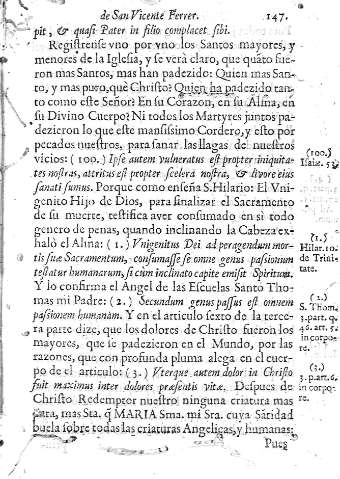 de San Vicente Ferrer. 147.
pit, & quasi Pater in filio complacet sibi.
Registrense vno por vno los Santos mayores, y
menores de la Iglesia, y se verà claro, que quãto fue-
ron mas Santos, mas han padezido: Quien mas San-
to, y mas puro, què Christo? Quien ha padezido tan-
to como este Señor? En su Corazon, en su Alma, en
su Divino Cuerpo? Ni todos los Martyres juntos pa-
dezieron lo que este mansissimo Cordero, y esto por
pecados nuestros, para sanar las llagas de nuestros
vicios: (100.) Ipse autem vulneratus est propter iniquita-
tes nostras, attritus est propter scelera nostra, & livore eius
sanati sumus. Porque como enseña S. Hilario: El Vni-
genito Hijo de Dios, para finalizar el Sacramento
de su muerte, testifica aver consumado en si todo
genero de penas, quando inclinando la Cabeza ex-
halò el Alma: (1.) Vnigenitus Dei ad peragendum mor-
tis suæ Sacramentum, consumasse se omne genus passionum
testatur humanarum, si cum inclinato capite emisit Spiritum.
Y lo confirma el Angel de las Escuelas Santo Tho-
mas mi Padre: (2.) Secundum genus passus est omnem
passionem humanam. Y en el articulo sexto de la terce-
ra parte dize, que los dolores de Christo fueron los
mayores, que se padezieron en el Mundo, por las
razones, que con profunda pluma alega en el cuer-
po de el articulo: (3.) Vterque autem dolor in Christo
fuit maximus inter dolores præsentis vitæ. Despues de
Christo Redemptor nuestro ninguna criatura mas
cara, mas Sta. q̃ MARIA Sma. mi Sra. cuya Sãtidad
buela sobre todas las criaturas Angelicas, y humanas:
Pues
(100.)
Isaiæ. 53.
(1.)
Hilar. 10.
de Trini-
tate.
(2.)
S. Thom.
3. part. q.
46. art. 5.
in corpo-
re.
(3.)
3. p. art. 6.
in corpo-
re.